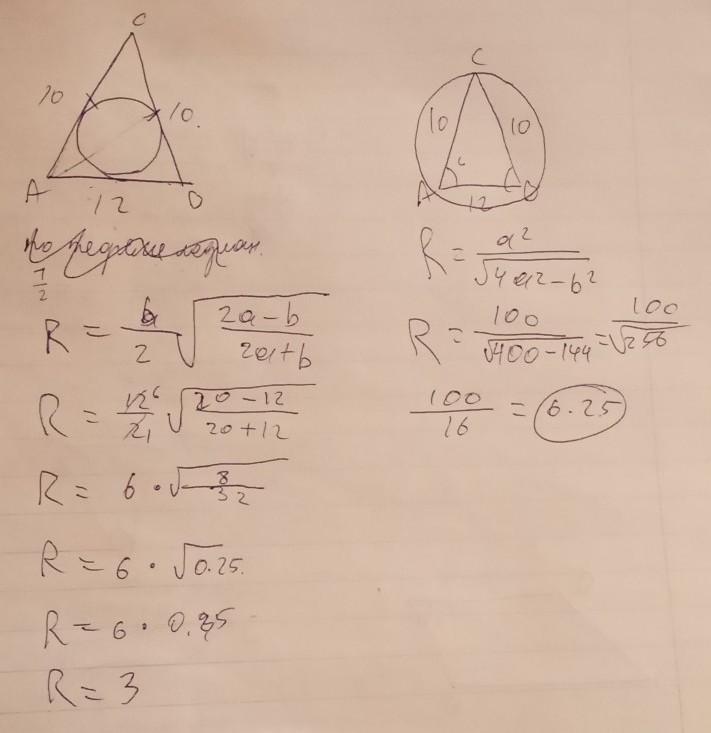 C
10
10.
A
D
12
1/2
R = b/2 √((2a-b)/(2a+b))
R = 12⁶/2₁ √((20-12)/(20+12))
R = 6 · √(8/32)
R = 6 · √0.25.
R = 6 · 0.5
R = 3
C
10
10
A
12
R = a²/√(4a²-b²)
R = 100/√(400-144) = 100/√256
100/16 = 6.25